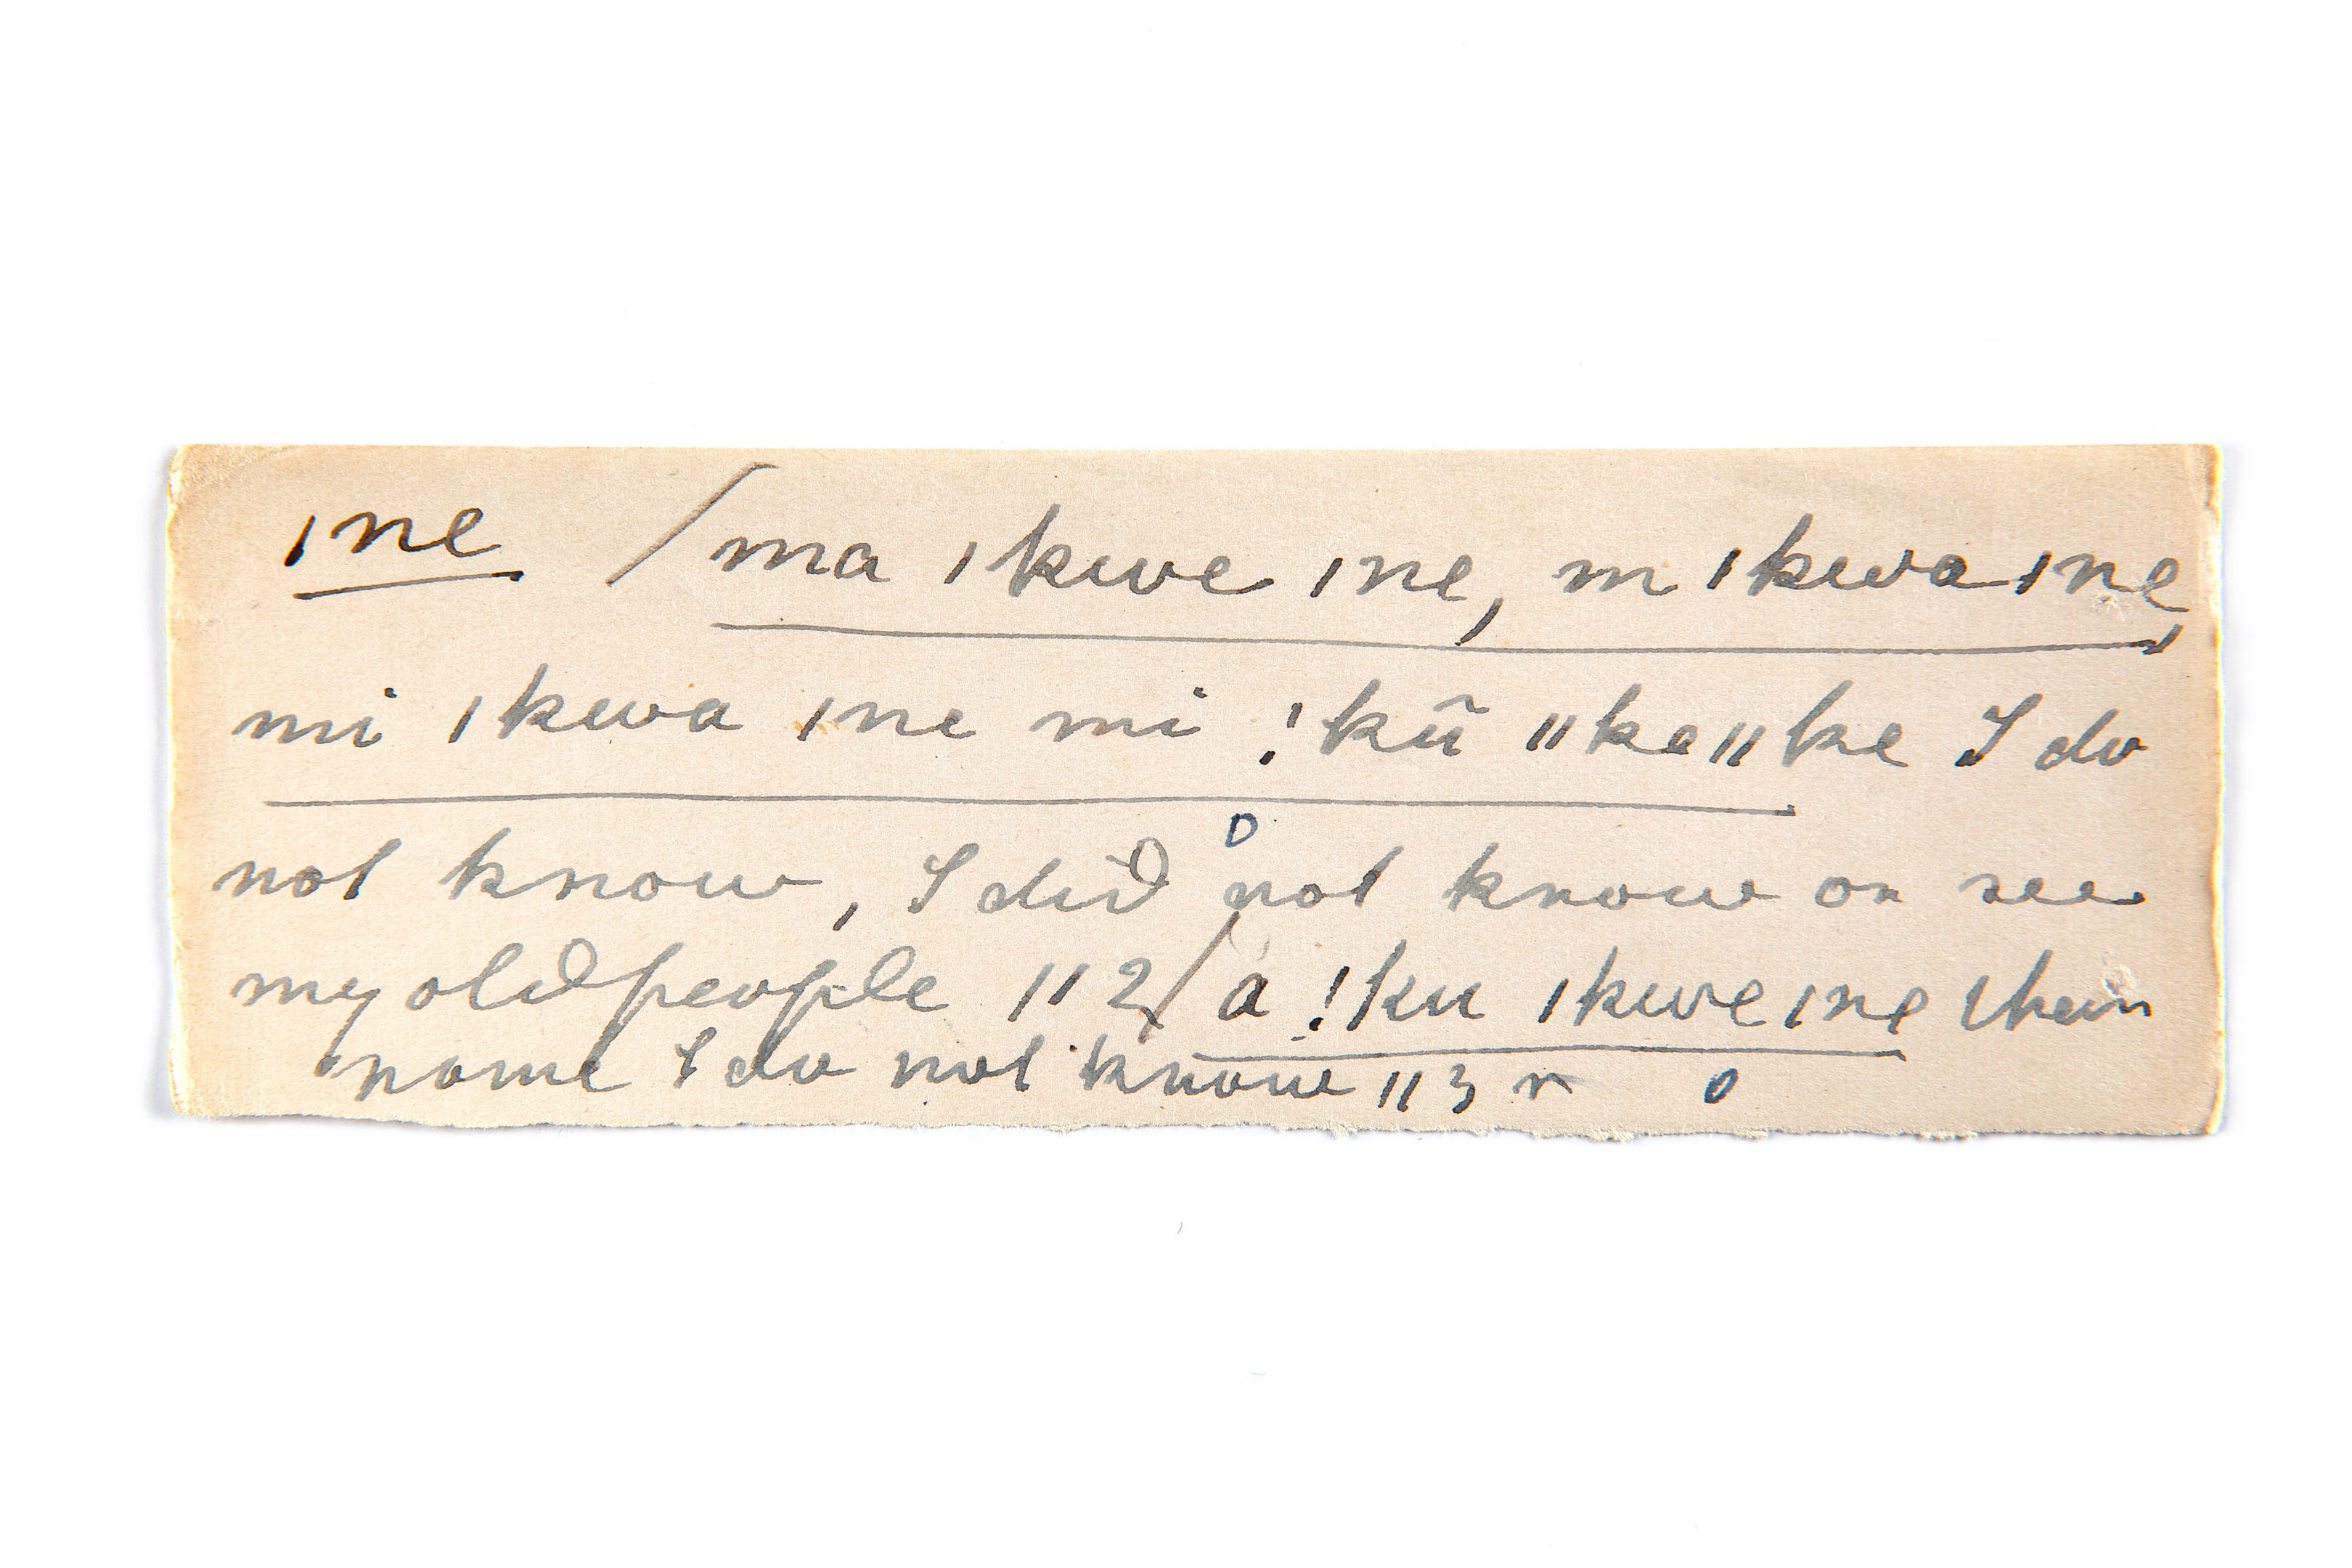 ǀne / ma ǀkwe ǀne, m ǀkwa ǀne,
mi ǀkwa ǀne mi !kũ ǁkaǁke I do
not know, I did not know or see
my old people ǁ2/ a !ku ǀkwe ǀne their
name I do not know ǁ3 r 0